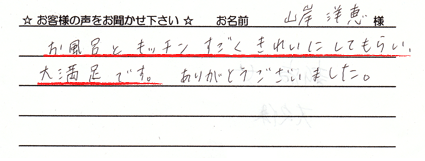 ☆ お客様の声をお聞かせ下さい ☆ お名前 山岸洋恵 様
お風呂とキッチンすごくきれいにしてもらい、
大満足です。ありがとうございました。